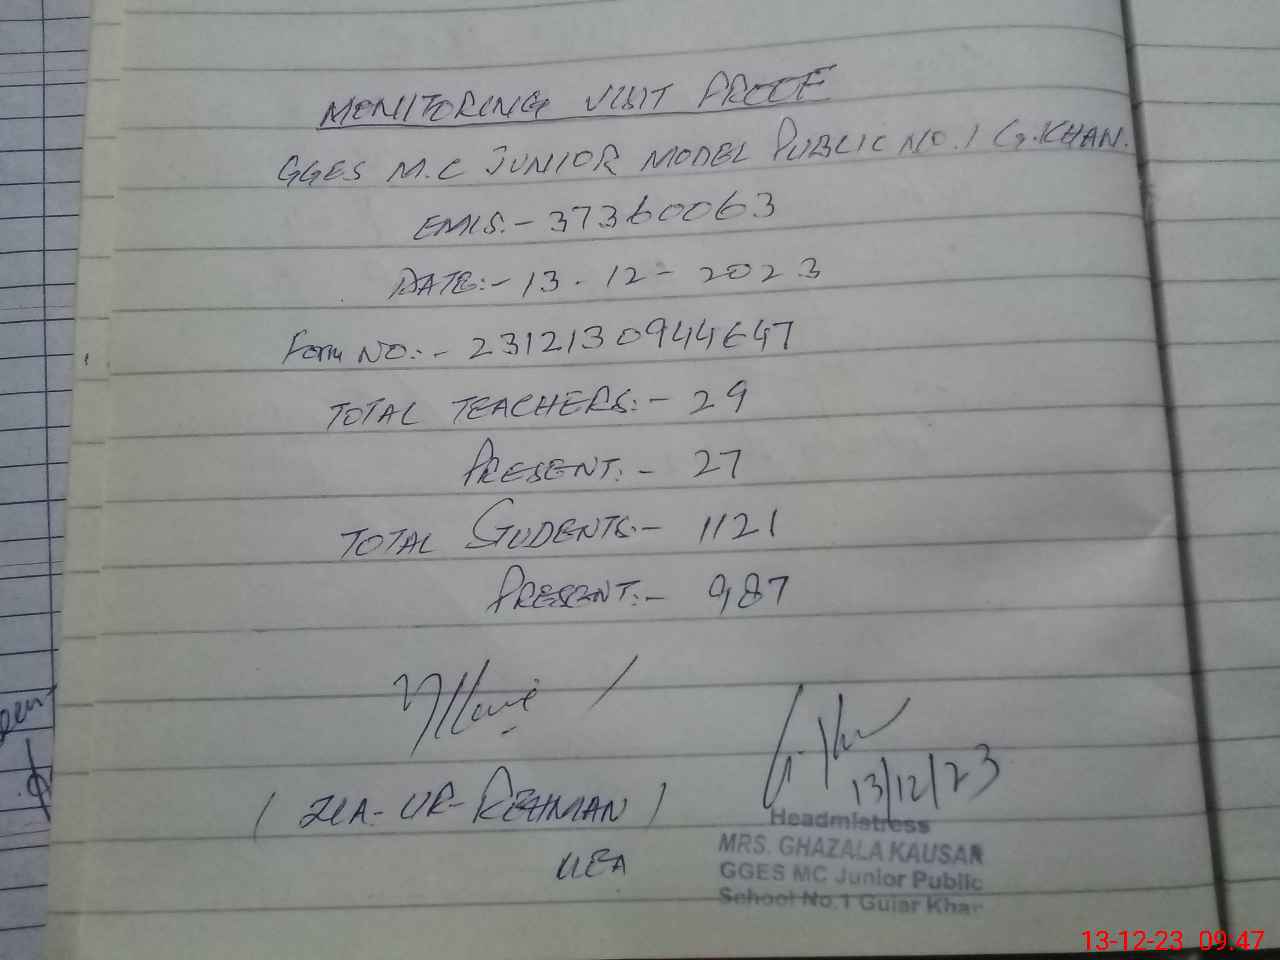 MONITORING VISIT PROOF
GGES M.C JUNIOR MODEL PUBLIC NO.1 G.KHAN.
EMIS:- 37360063
DATE:- 13-12-2023
Form NO:- 2312130944647
TOTAL TEACHERS:- 29
PRESENT:- 27
TOTAL STUDENTS:- 1121
PRESENT:- 987
13/12/23
(ZIA-UR-REHMAN)
Headmistress
MRS. GHAZALA KAUSAR
GGES MC Junior Public
School No.1 Gujar Khan
13-12-23 09:47